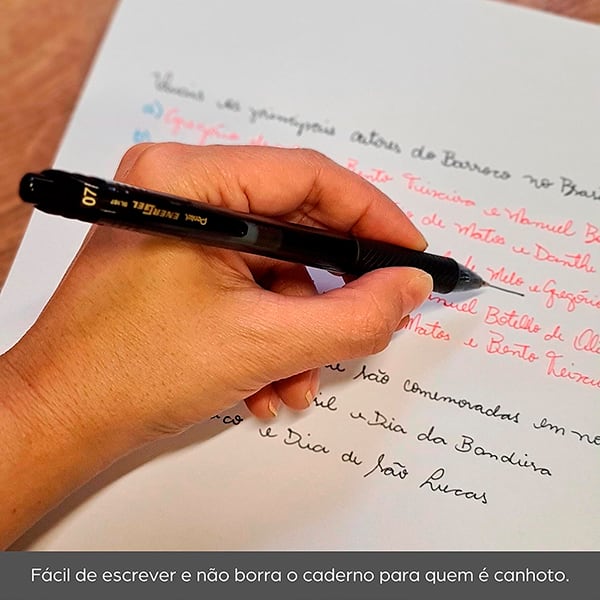 Quais os principais autores do Barroco no Brasi
a) Gregório de Bento Teixeira e Manuel Bo
b) de Matos e Danthe
de Melo e Gregório
Manuel Botelho de Oli
Matos e Bento Teixeira
são comemoradas em no
sil e Dia da Bandeira
co e Dia de São Lucas
07
Pentel ENERGEL BL107
Fácil de escrever e não borra o caderno para quem é canhoto.